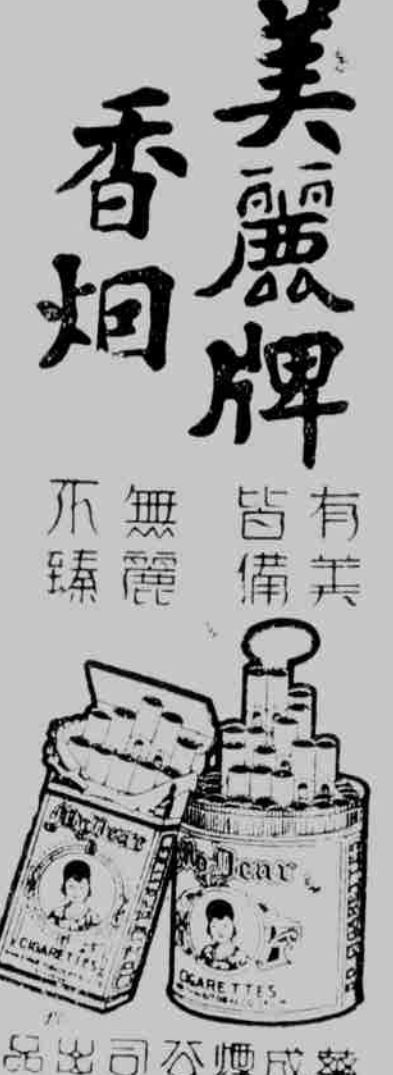 美麗牌
香烟
有美皆備
無麗不臻
My Dear
CIGARETTES
My Dear
CIGARETTES
華成煙公司出品